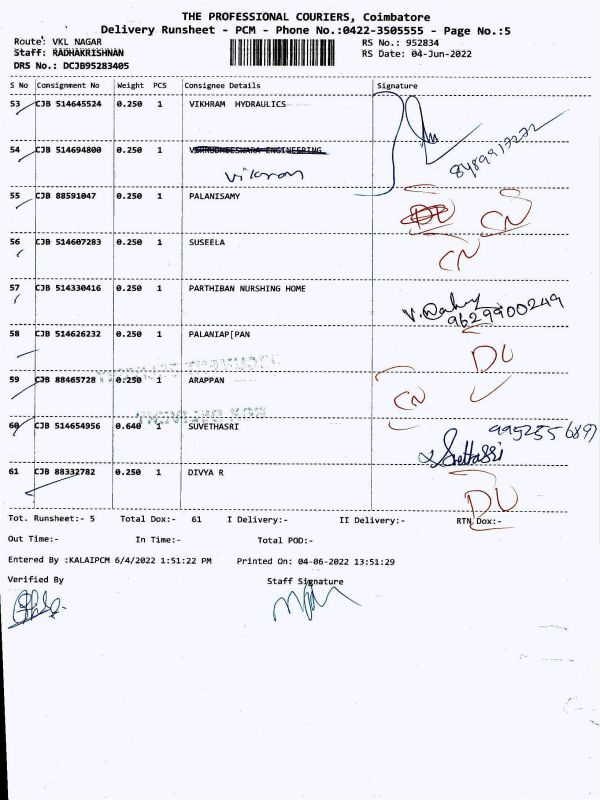 THE PROFESSIONAL COURIERS, Coimbatore
Delivery Runsheet - PCM - Phone No.:0422-3505555 - Page No.:5
Route: VKL NAGAR RS No.: 952834
Staff: RADHAKRISHNAN RS Date: 04-Jun-2022
DRS No.: DCJB95283405
S No Consignment No Weight PCS Consignee Details Signature
53 CJB 514645524 0.250 1 VIKHRAM HYDRAULICS
54 CJB 514694800 0.250 1 ENGINEERING 8489917272
Vikram
55 CJB 88591047 0.250 1 PALANISAMY DL CN
56 CJB 514607283 0.250 1 SUSEELA CN
57 CJB 514330416 0.250 1 PARTHIBAN NURSHING HOME
9629900249
58 CJB 514626232 0.250 1 PALANIAP[PAN DL
59 CJB 88465728 0.250 1 ARAPPAN CN
60 CJB 514654956 0.640 1 SUVETHASRI
61 CJB 88332782 0.250 1 DIVYA R DL
Tot. Runsheet:- 5 Total Dox:- 61 I Delivery:- II Delivery:- RTN Dox:-
Out Time:- In Time:- Total POD:-
Entered By :KALAIPCM 6/4/2022 1:51:22 PM Printed On: 04-06-2022 13:51:29
Verified By Staff Signature